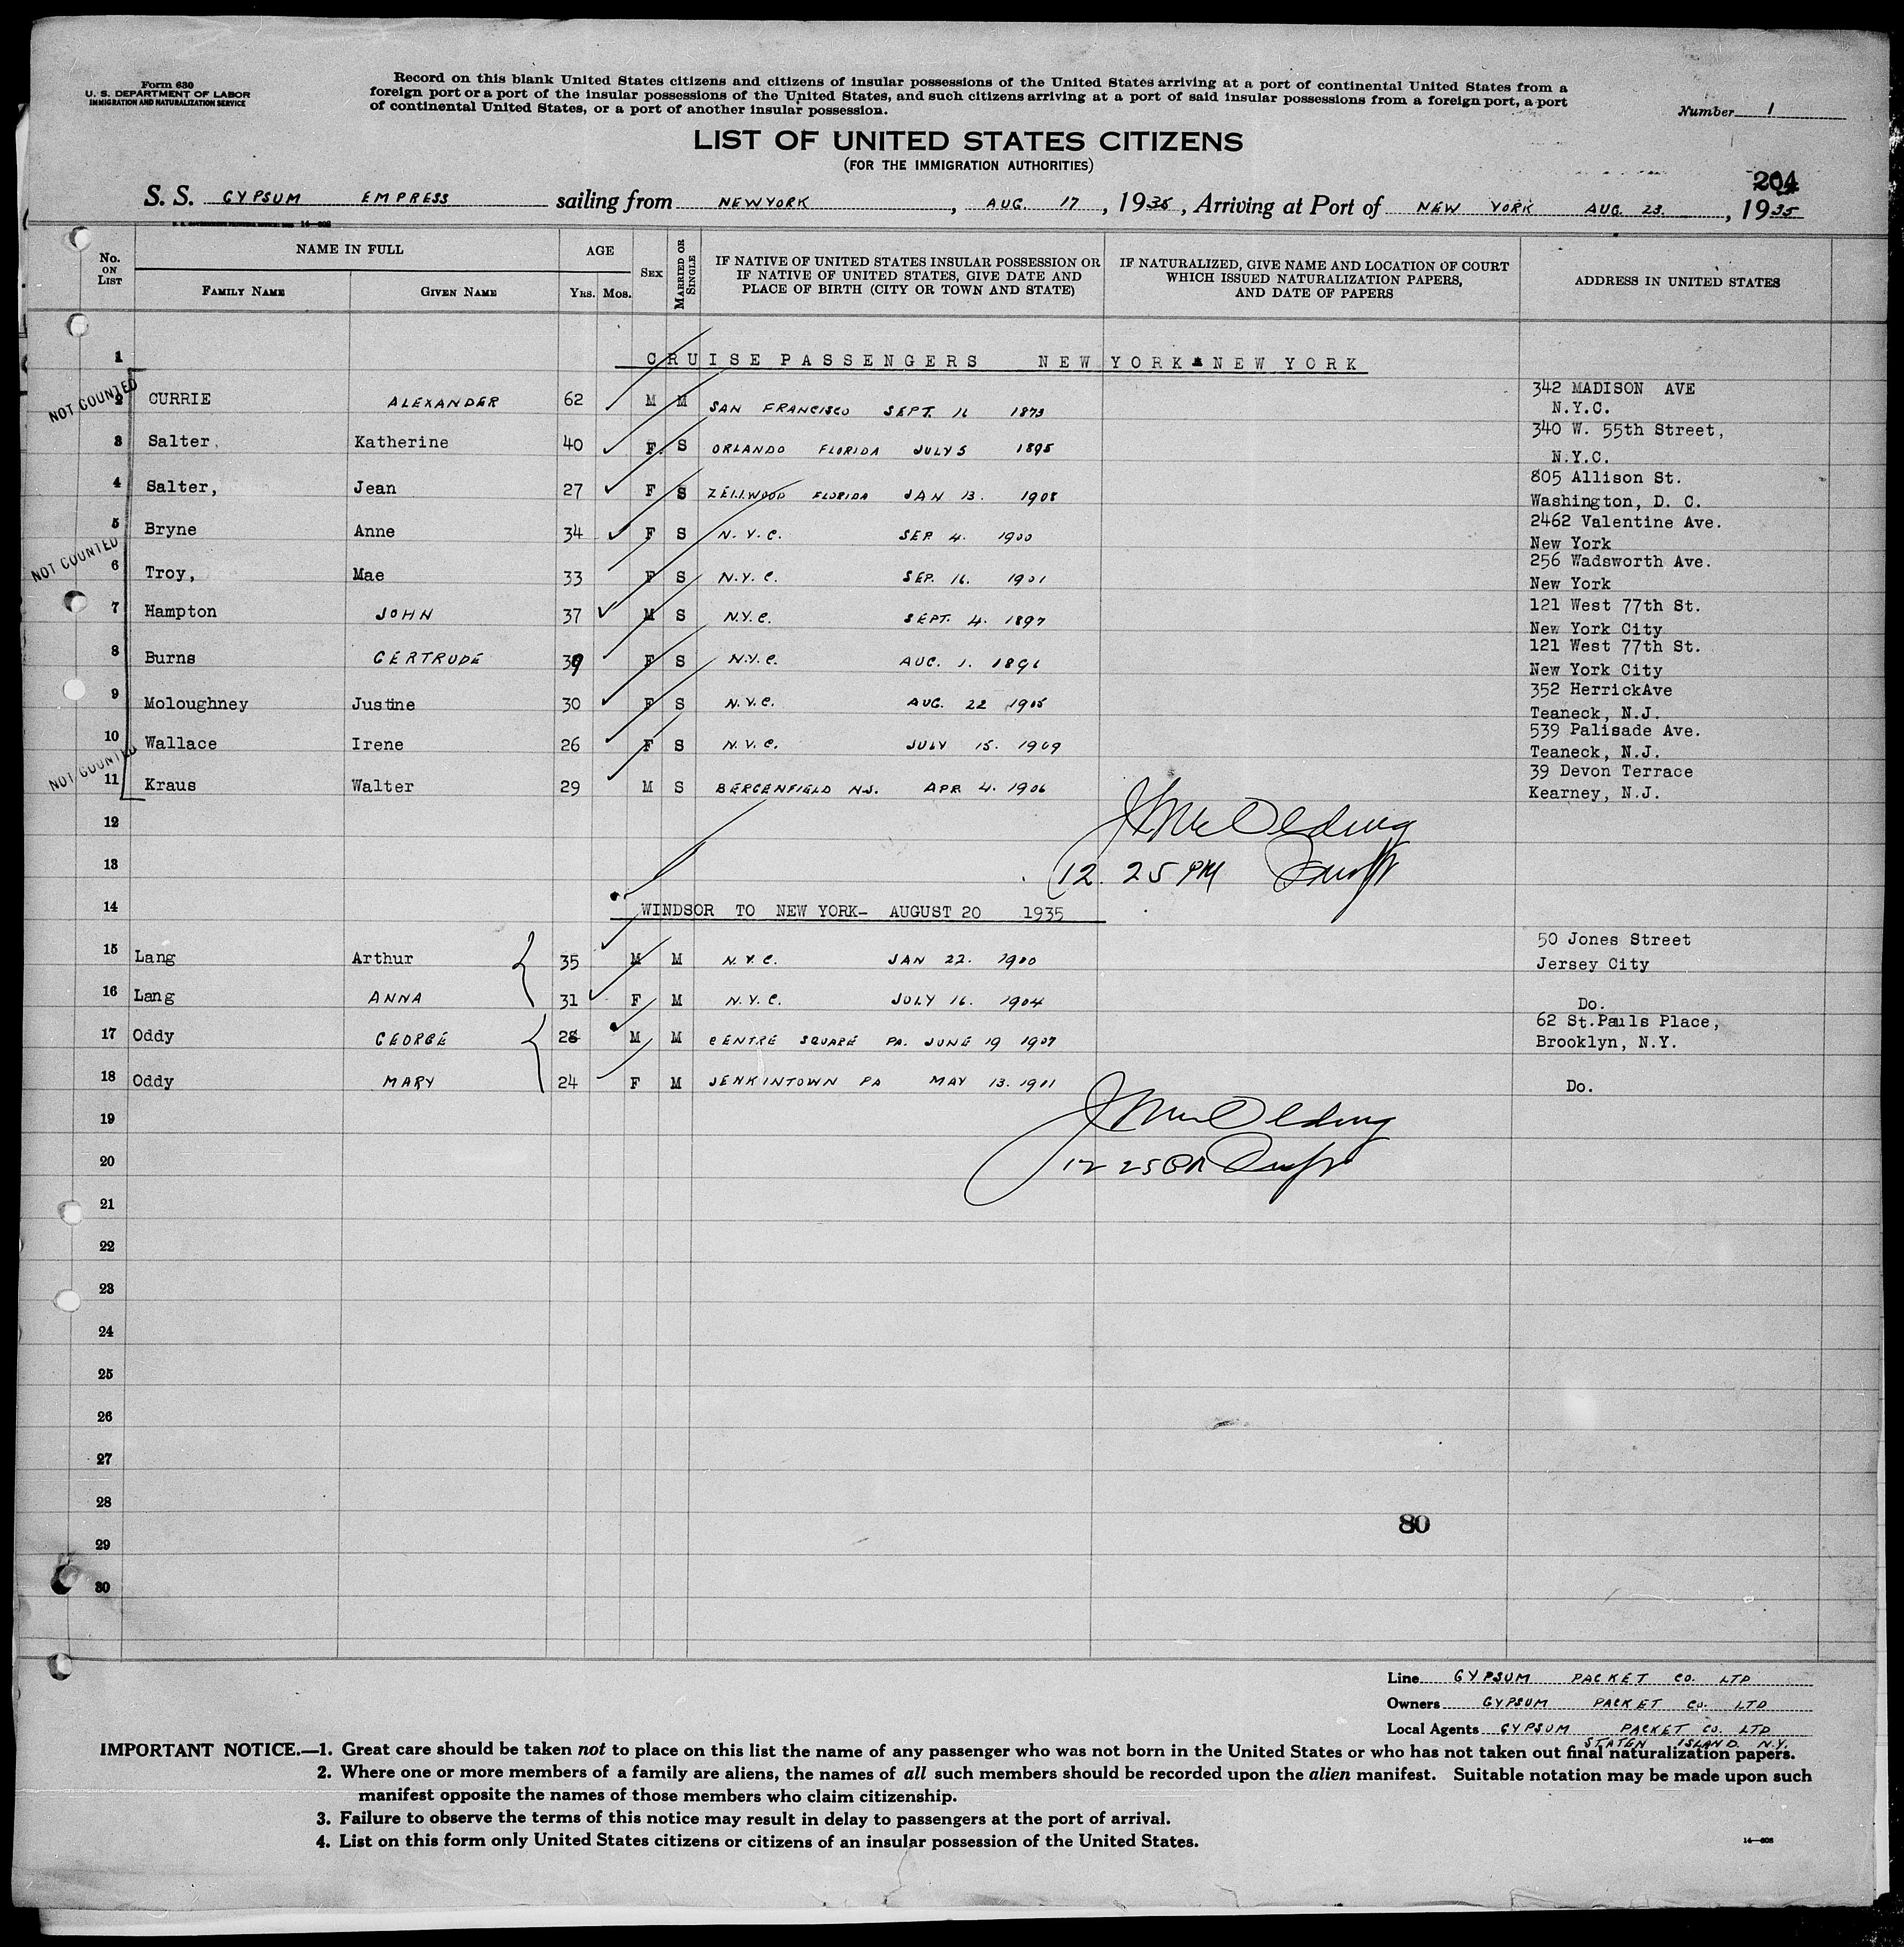 Form 630
U. S. DEPARTMENT OF LABOR
IMMIGRATION AND NATURALIZATION SERVICE
Record on this blank United States citizens and citizens of insular possessions of the United States arriving at a port of continental United States from a
foreign port or a port of the insular possessions of the United States, and such citizens arriving at a port of said insular possessions from a foreign port, a port
of continental United States, or a port of another insular possession.
Number 1
LIST OF UNITED STATES CITIZENS
(FOR THE IMMIGRATION AUTHORITIES)
204
S. S. GYPSUM EMPRESS sailing from NEW YORK, AUG. 17, 1935, Arriving at Port of NEW YORK AUG. 23., 1935
No. ON LIST
NAME IN FULL
FAMILY NAME GIVEN NAME
AGE
YRS. MOS.
SEX
MARRIED OR SINGLE
IF NATIVE OF UNITED STATES INSULAR POSSESSION OR
IF NATIVE OF UNITED STATES, GIVE DATE AND
PLACE OF BIRTH (CITY OR TOWN AND STATE)
IF NATURALIZED, GIVE NAME AND LOCATION OF COURT
WHICH ISSUED NATURALIZATION PAPERS,
AND DATE OF PAPERS
ADDRESS IN UNITED STATES
1 CRUISE PASSENGERS NEW YORK NEW YORK
NOT COUNTED
2 CURRIE ALEXANDER 62 M M SAN FRANCISCO SEPT. 16 1873 342 MADISON AVE
N.Y.C.
3 Salter, Katherine 40 F S ORLANDO FLORIDA JULY 5 1895 340 W. 55th Street,
N.Y.C.
4 Salter, Jean 27 F S ZELLWOOD FLORIDA JAN 13. 1908 805 Allison St.
Washington, D. C.
5 Bryne Anne 34 F S N.Y.C. SEP. 4. 1900 2462 Valentine Ave.
New York
NOT COUNTED
6 Troy, Mae 33 F S N.Y.C. SEP. 16. 1901 256 Wadsworth Ave.
New York
7 Hampton JOHN 37 M S N.Y.C. SEPT. 4. 1897 121 West 77th St.
New York City
8 Burns GERTRUDE 39 F S N.Y.C. AUG. 1. 1896 121 West 77th St.
New York City
9 Moloughney Justine 30 F S N.Y.C. AUG. 22 1905 352 HerrickAve
Teaneck, N.J.
10 Wallace Irene 26 F S N.Y.C. JULY 15. 1909 539 Palisade Ave.
Teaneck, N.J.
NOT COUNTED
11 Kraus Walter 29 M S BERGENFIELD N.J. APR 4. 1906 39 Devon Terrace
Kearney, N.J.
12
13 12.25 PM
14 WINDSOR TO NEW YORK- AUGUST 20 1935
15 Lang Arthur 35 M M N.Y.C. JAN 22. 1900 50 Jones Street
Jersey City
16 Lang ANNA 31 F M N.Y.C. JULY 16. 1904 Do.
17 Oddy GEORGE 28 M M CENTRE SQUARE PA. JUNE 19 1907 62 St.Pauls Place,
Brooklyn, N.Y.
18 Oddy MARY 24 F M JENKINTOWN PA MAY 13. 1911 Do.
19
20 12 25
21
22
23
24
25
26
27
28
80
29
30
Line GYPSUM PACKET CO. LTD
Owners GYPSUM PACKET CO. LTD
Local Agents GYPSUM PACKET CO. LTD
STATEN ISLAND. N.Y.
IMPORTANT NOTICE.—1. Great care should be taken not to place on this list the name of any passenger who was not born in the United States or who has not taken out final naturalization papers.
2. Where one or more members of a family are aliens, the names of all such members should be recorded upon the alien manifest. Suitable notation may be made upon such
manifest opposite the names of those members who claim citizenship.
3. Failure to observe the terms of this notice may result in delay to passengers at the port of arrival.
4. List on this form only United States citizens or citizens of an insular possession of the United States.
14—608